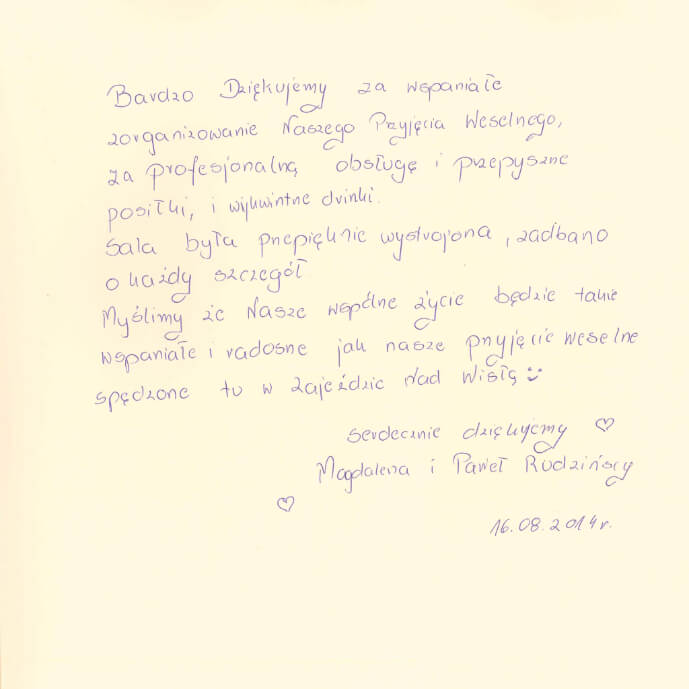 Bardzo Dziękujemy za wspaniałe
zorganizowanie Naszego Przyjęcia Weselnego,
za profesjonalną obsługę i przepyszne
posiłki, i wykwintne drinki.
Sala była przepięknie wystrojona, zadbano
o każdy szczegół
Myślimy że Nasze wspólne życie będzie takie
wspaniałe i radosne jak nasze przyjęcie weselne
spędzone tu w Zajeździe Nad Wisłą :)
serdecznie dziękujemy ♡
Magdalena i Paweł Rudzińscy
♡
16.08.2014r.